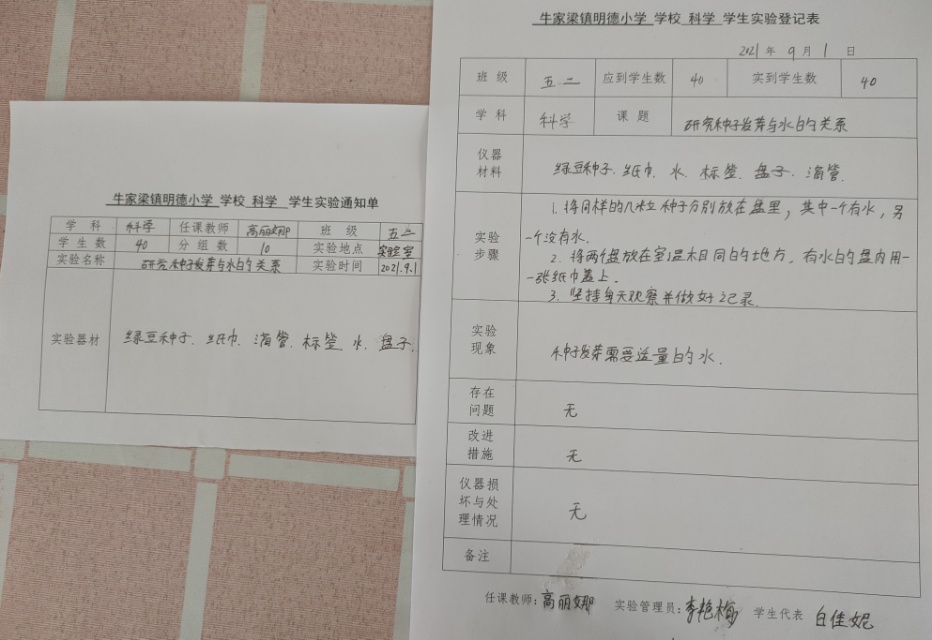 牛家梁镇明德小学 学校 科学 学生实验通知单
学科 科学 任课教师 高丽娜 班级 五二
学生数 40 分组数 10 实验地点 实验室
实验名称 研究种子发芽与水的关系 实验时间 2021.9.1
实验器材 绿豆种子、纸巾、滴管、标签、水、盘子.
牛家梁镇明德小学 学校 科学 学生实验登记表
2021年 9月 1日
班级 五二 应到学生数 40 实到学生数 40
学科 科学 课题 研究种子发芽与水的关系
仪器
材料
绿豆种子、纸巾、水、标签、盘子、滴管.
实验
步骤
1. 将同样的几粒种子分别放在盘里，其中一个有水，另
一个没有水.
2. 将两个盘放在室温相同的地方，有水的盘内用一
一张纸巾盖上.
3. 坚持每天观察并做好记录.
实验
现象
种子发芽需要适量的水.
存在
问题
无
改进
措施
无
仪器损
坏与处
理情况
无
备注
任课教师：高丽娜 实验管理员：李艳梅 学生代表 白佳妮